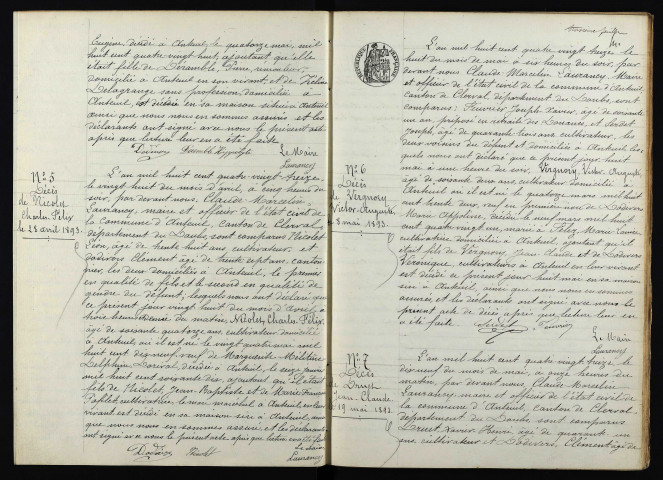 Eugène décédé à Anteuil, le quatorze mai, mil
huit cent quatre vingt huit, ajoutant qu'elle
était fille de
domicilié à Anteuil en son vivant, et de
Delagrange sans profession, domiciliée à
Anteuil, est décédée en sa maison située à Anteuil
ainsi que nous nous en sommes assurés et les
déclarants ont signé avec nous le présent acte
après que lecture leur en a été faite.
Le Maire
Laurancy
N° 5
Décès
de Nicolet
Charles Félix
le 28 avril 1893.
L'an mil huit cent quatre vingt treize,
le vingt huit du mois d'avril, à cinq heures du
soir, par devant nous, Claude Marcelin
Laurancy, maire et officier de l'état civil de
la commune d'Anteuil, canton de Clerval,
département du Doubs, sont comparus Nicolet
Léon, âgé de trente huit ans, cultivateur, et
Clément âgé de trente sept ans, canton-
nier, les deux domiciliés à Anteuil, le premier
en qualité de fils et le second en qualité de
gendre du défunt, lesquels nous ont déclaré que
ce présent jour vingt huit du mois d'avril à
trois heures du matin, Nicolet, Charles Félix,
âgé de soixante quatorze ans, cultivateur domicilié
à Anteuil où il est né le vingt quatre mai mil
huit cent dix-neuf, veuf de Marguerite
Delphine décédée à Anteuil, le onze
mil huit cent soixante dix, ajoutant qu'il était
fils de Nicolet, Jean Baptiste et de Marie Françoise
cultivateurs domiciliés à Anteuil en leur
vivant est décédé en sa maison sise à Anteuil, ainsi
que nous nous en sommes assurés et les déclarants
ont signé avec nous le présent acte après que lecture leur en a été faite
Le Maire
Laurancy
N° 6
Décès
de Vergnory
Victor-Auguste
8 mai 1893.
L'an mil huit cent quatre vingt treize, le
huit du mois de mai, à six heures du soir, par
devant nous Claude Marcelin Laurancy, Maire
et officier de l'état civil de la commune d'Anteuil,
canton de Clerval, département du Doubs, sont
comparus Joseph Xavier, âgé de soixante
un ans, préposé en retraite des Douanes, et
Joseph, âgé de quarante trois ans, cultivateur, les
deux voisins du défunt et domiciliés à Anteuil, les-
quels nous ont déclaré que ce présent jour huit
mai à une heure du soir, Vergnory, Victor Auguste
âgé de soixante ans, cultivateur domicilié à
Anteuil où il est né le quatorze mars mil huit
cent trente deux, veuf en premières noces de
Marie Appoline, décédée le neuf mars mil huit
cent quatre vingt un, marié à
cultivatrice domiciliée à Anteuil, ajoutant qu'il
était fils de Vergnory, Jean Claude et de
Véronique, cultivateurs à Anteuil en leur vivant
est décédé ce présent jour huit mai en sa maison
sise à Anteuil, ainsi que nous nous en sommes
assurés, et les déclarants ont signé avec nous le
présent acte de décès après que lecture leur en
a été faite.
Le Maire
Laurancy
N° 7
Décès
de Druet
Jean-Claude
le 19 mai 1893.
L'an mil huit cent quatre vingt treize, le
dix-neuf du mois de mai, à onze heures du
matin, par devant nous, Claude Marcelin
Laurancy, maire et officier de l'état civil de
la commune d'Anteuil, canton de Clerval,
département du Doubs, sont comparus
Druet Xavier Henri, âgé de quarante un
ans, cultivateur et Clément âgé de